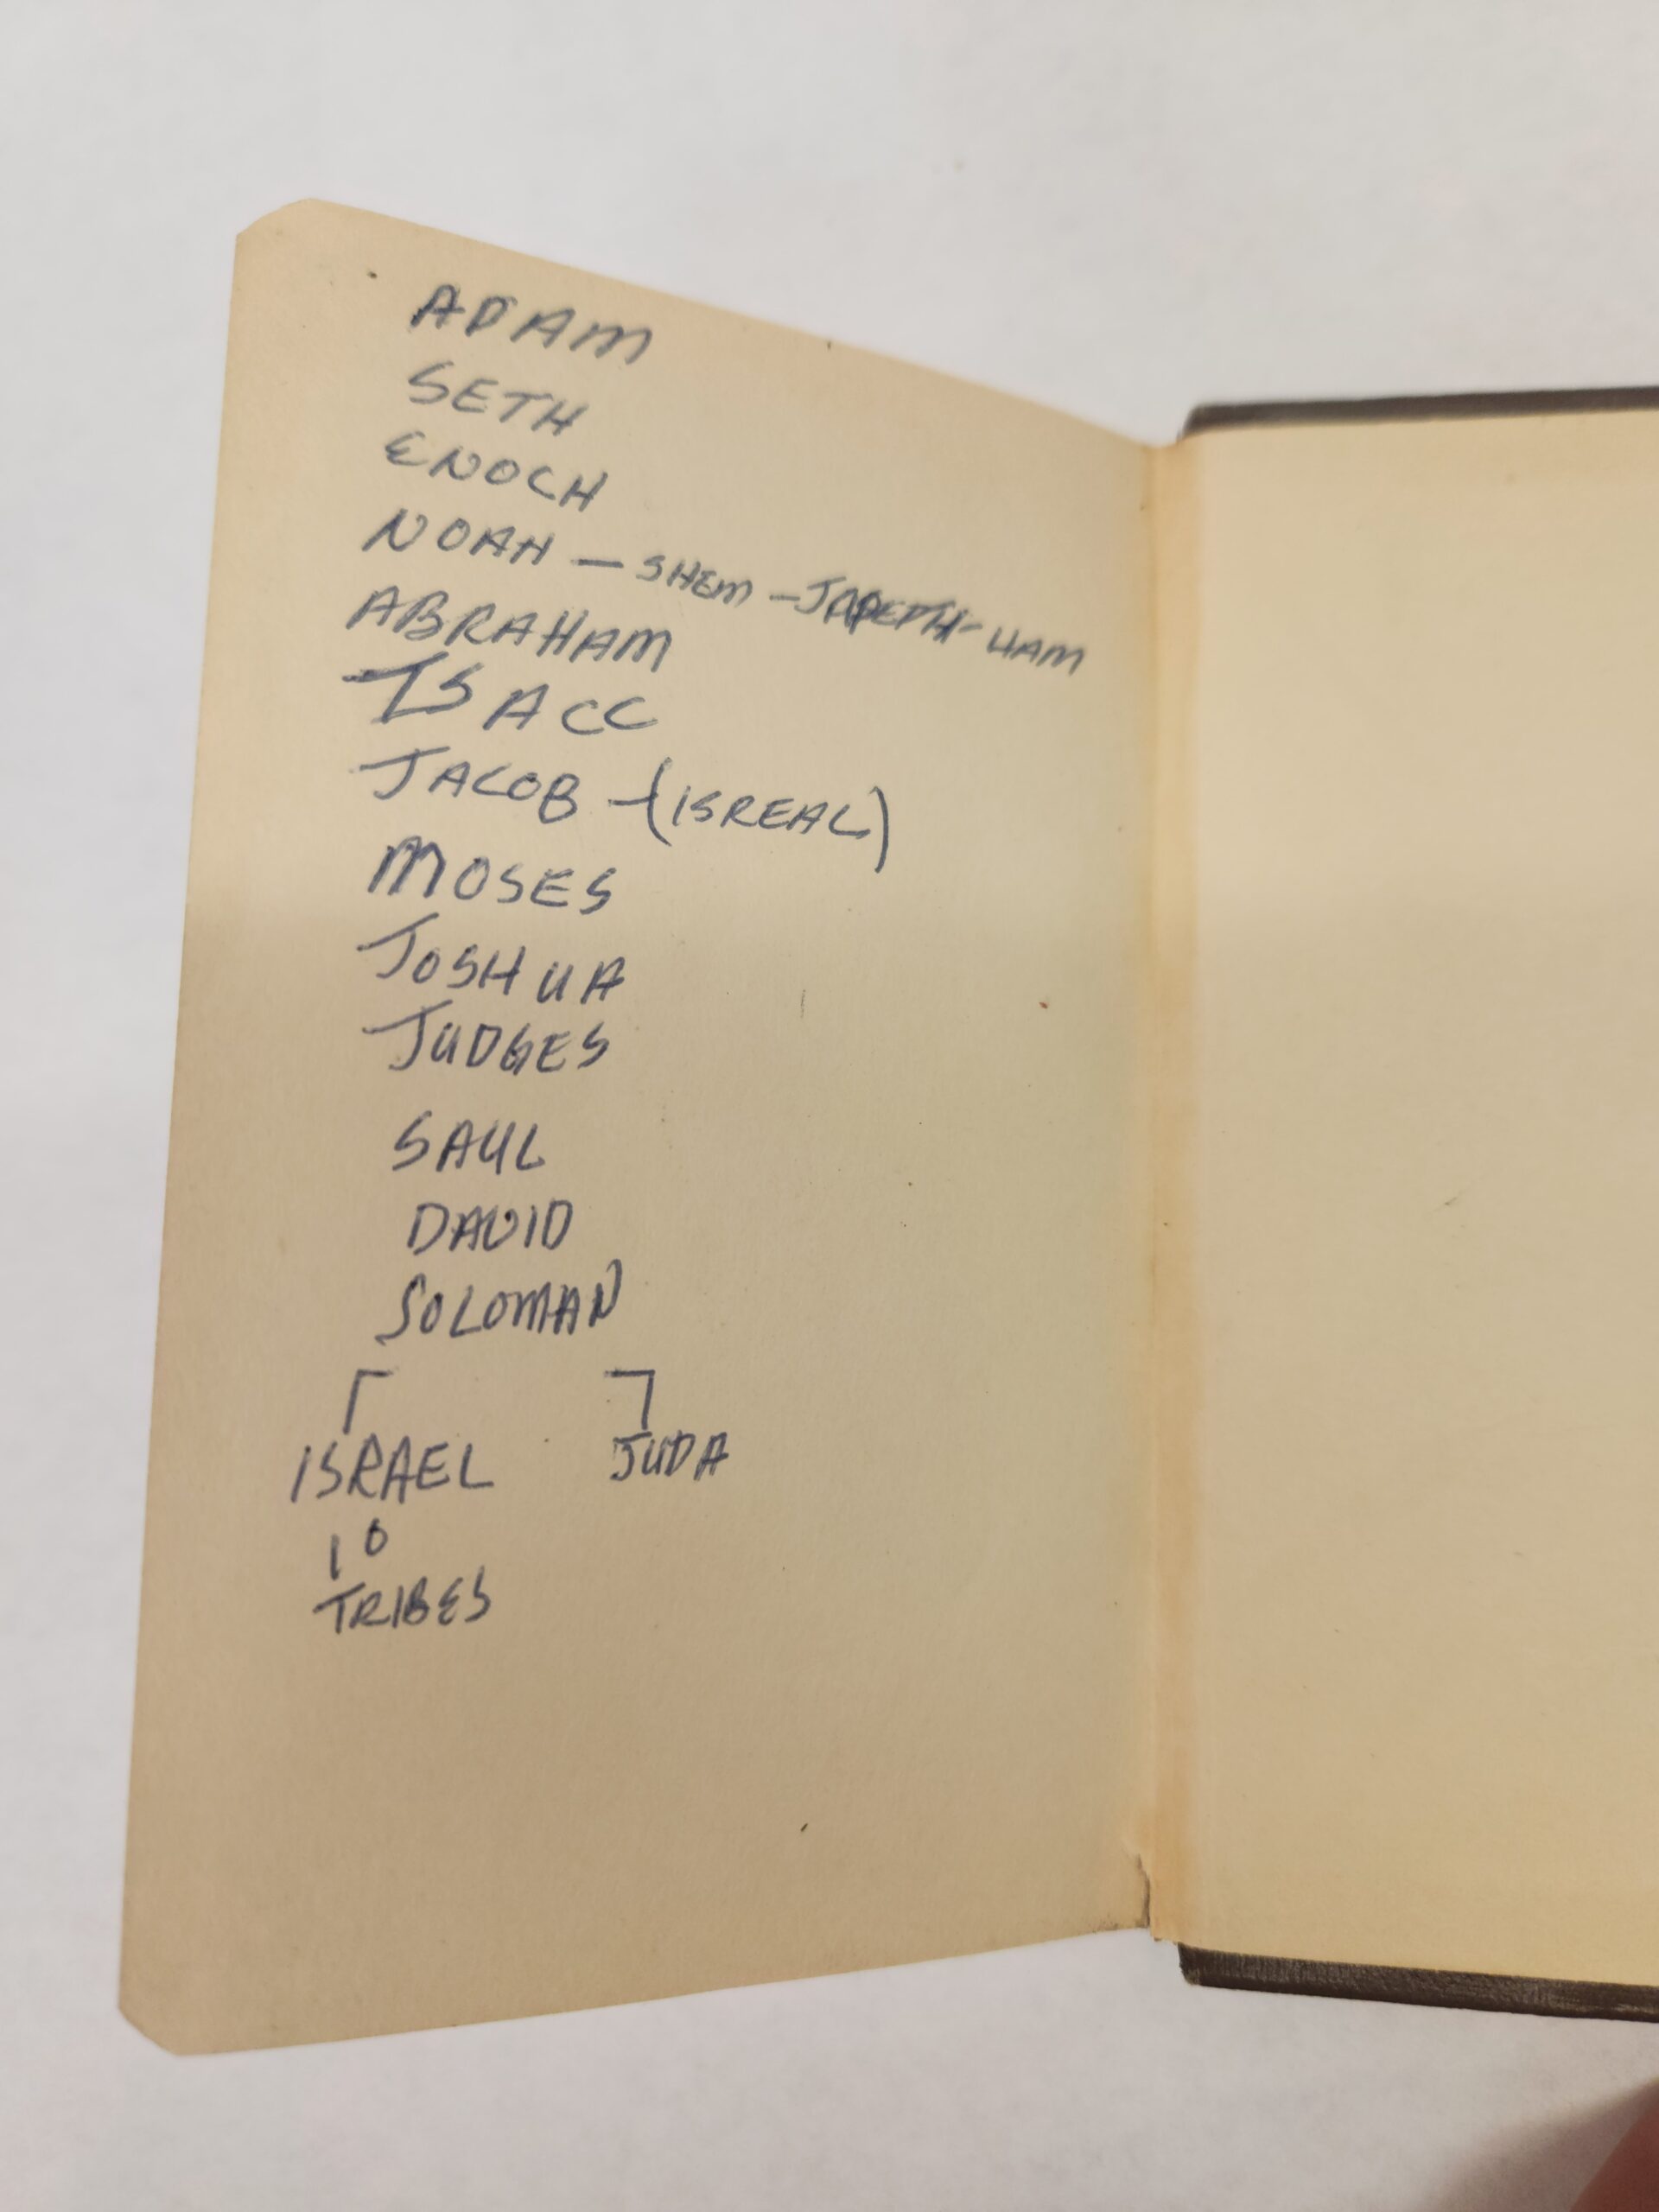 ADAM
SETH
ENOCH
NOAH — SHEM - JAPETH - HAM
ABRAHAM
ISACC
JACOB - (ISREAL)
MOSES
JOSHUA
JUDGES
SAUL
DAVID
SOLOMAN
ISRAEL JUDA
10
TRIBES